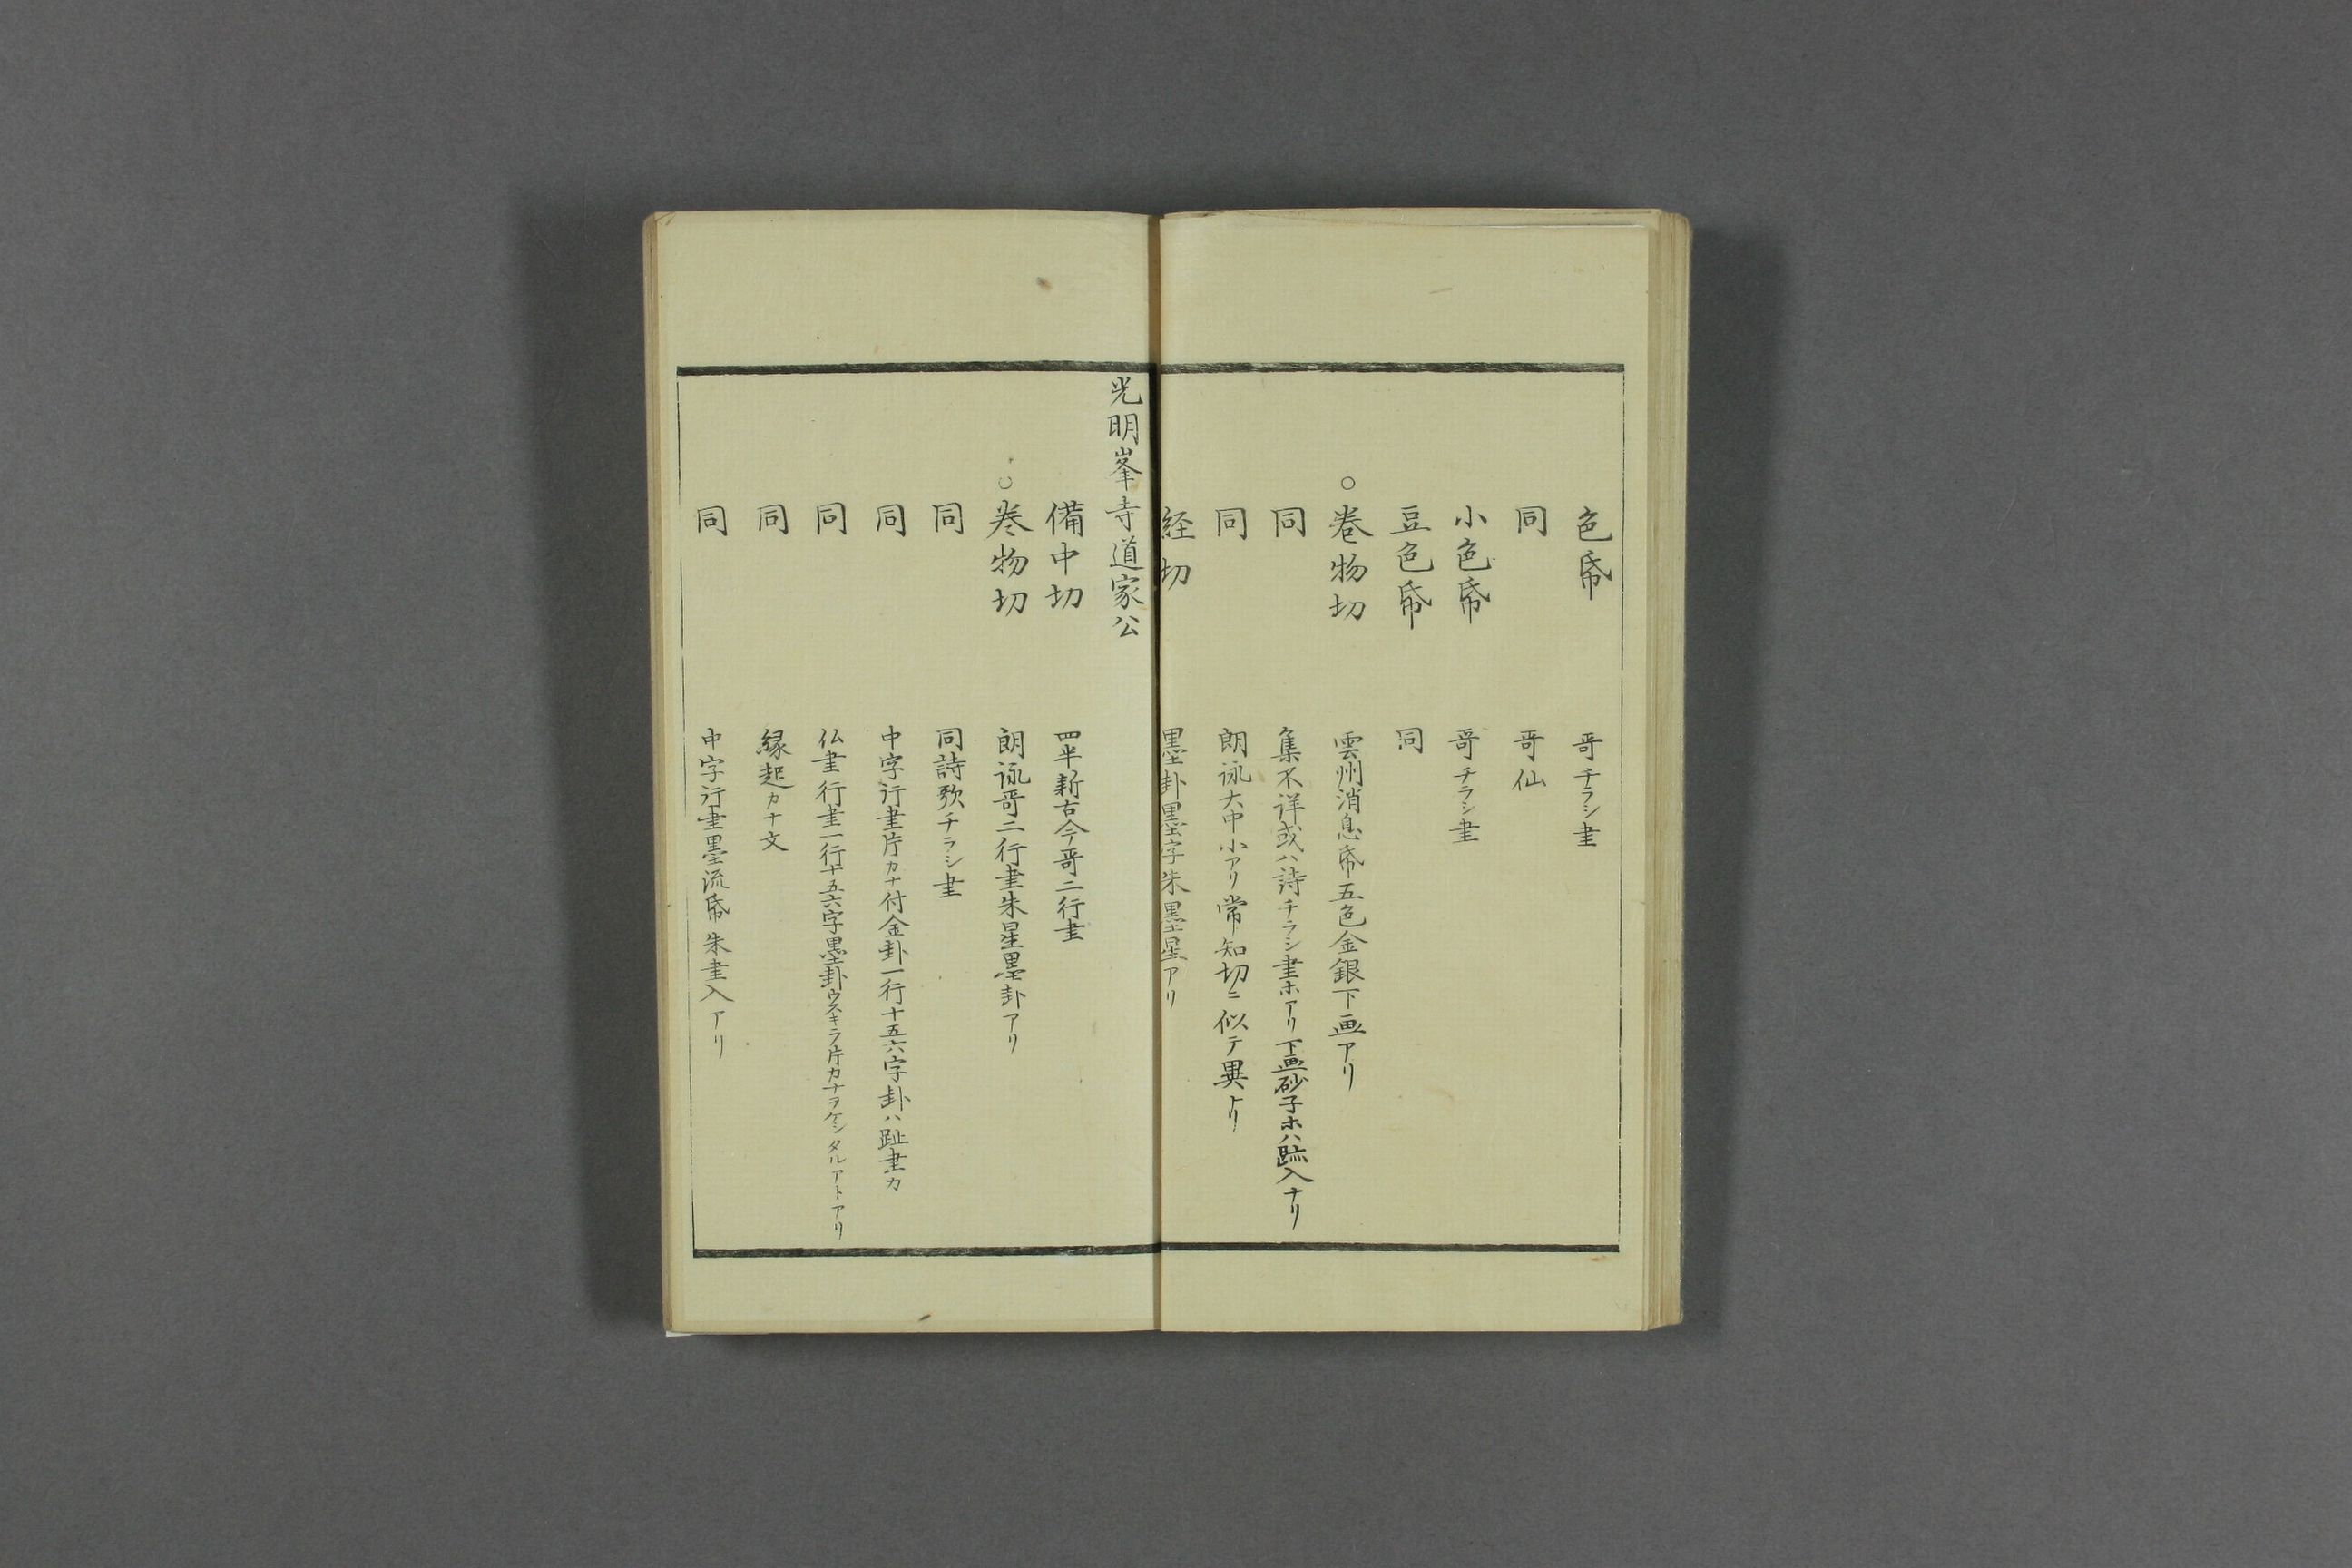 色帋 哥チラシ書
同 哥仙
小色帋 哥チラシ書
豆色帋 同
○巻物切 雲州消息帋五色金銀下画アリ
同 集不詳或ハ詩チラシ書ホアリ下畫砂子ホハ跡入ナリ
同 朗詠大中小アリ常知切ニ似テ異ナリ
経切 墨卦墨字朱墨星アリ
光明峯寺道家公
備中切 四半新古今哥二行書
○巻物切 朗詠哥二行書朱星墨卦アリ
同 同詩歌チラシ書
同 中字行書片カナ付金卦一行十五六字卦ハ趾書カ
同 仏書行書一行十五六字墨卦ウスキラ片カナヲケシタルアトアリ
同 縁起カナ文
同 中字行書墨流帋朱書入アリ